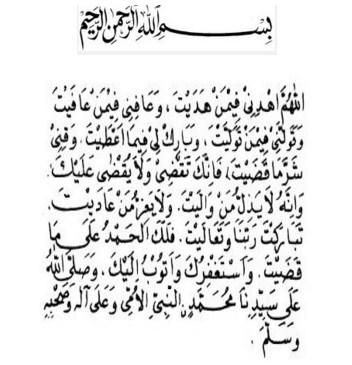 بِسْمِ اللهِ الرَّحْمٰنِ الرَّحِيْمِ
اَللّٰهُمَّ اهْدِنِيْ فِيْمَنْ هَدَيْتَ ، وَعَافِنِيْ فِيْمَنْ عَافَيْتَ
وَتَوَلَّنِيْ فِيْمَنْ تَوَلَّيْتَ ، وَبَارِكْ لِيْ فِيْمَا اَعْطَيْتَ . وَقِنِيْ
شَرَّمَا قَضَيْتَ ، فَاِنَّكَ تَقْضِيْ وَلَا يُقْضٰى عَلَيْكَ .
وَاِنَّهُ لَا يَذِلُّ مَنْ وَالَيْتَ . وَلَا يَعِزُّ مَنْ عَادَيْتَ .
تَبَارَكْتَ رَبَّنَا وَتَعَالَيْتَ . فَلَكَ الْحَمْدُ عَلٰى مَا
قَضَيْتَ . وَاَسْتَغْفِرُكَ وَاَتُوْبُ اِلَيْكَ . وَصَلَّى اللهُ
عَلٰى سَيِّدِنَا مُحَمَّدٍ ِالنَّبِيِّ الْاُمِّيِّ وَعَلٰى آلِهِ وَصَحْبِهِ
وَسَلَّمَ .